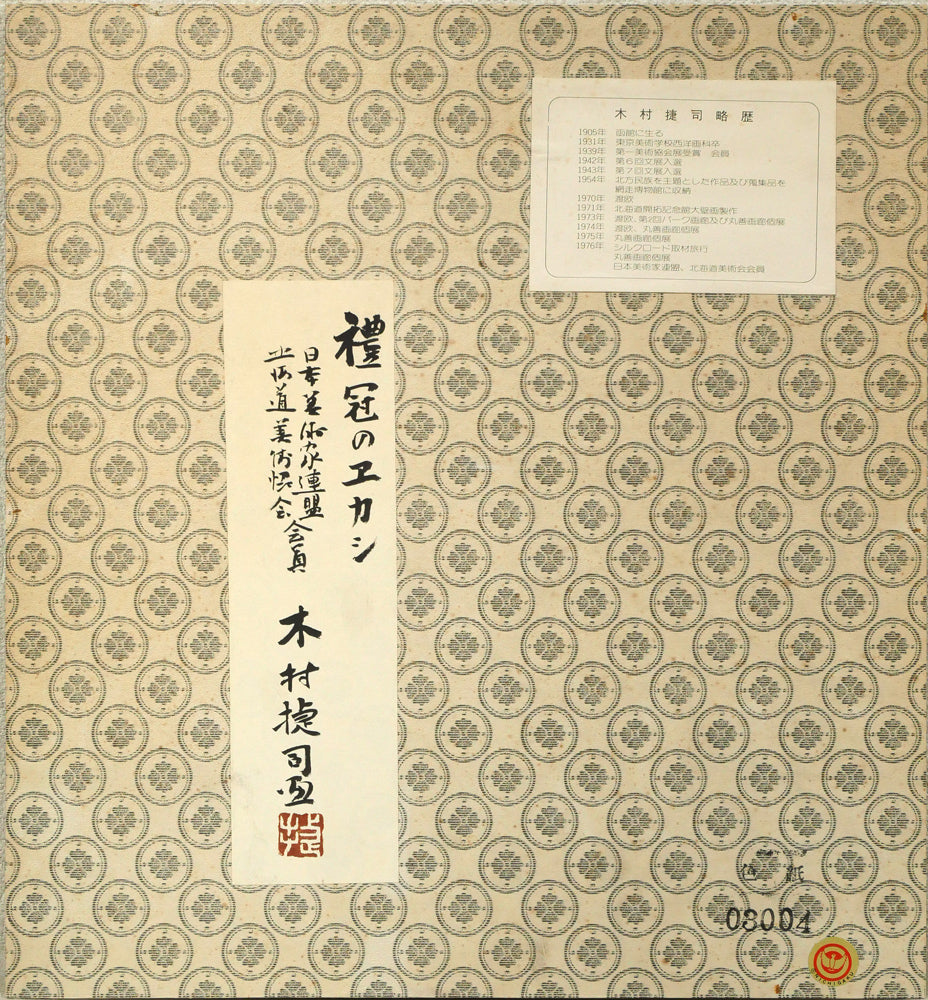 木村捷司略歴
1905年 函館に生る
1931年 東京美術学校西洋画科卒
1939年 第一美術協会展受賞 会員
1942年 第5回文展入選
1943年 第6回文展入選
1954年 北方民族を主題とした作品及び蒐集品を
網走博物館に収納
1970年 渡欧
1971年 北海道開拓記念館大壁画製作
1973年 渡欧、第2回パーク画廊及び丸善画廊個展
1974年 渡欧、丸善画廊個展
1975年 丸善画廊個展
1976年 シルクロード取材旅行
丸善画廊個展
日本美術家連盟、北海道美術会会員
禮冠のエカシ
日本美術家連盟
北海道美術協会会員
木村捷司画
捷
色紙
03004